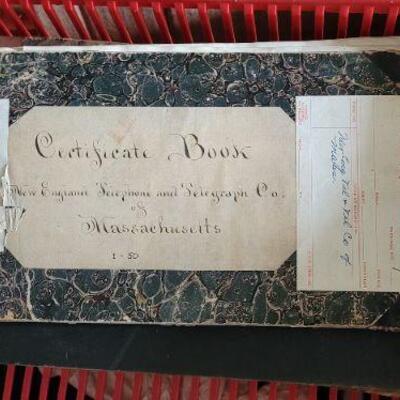 Certificate Book
New England Telephone and Telegraph Co.
of
Massachusetts
1-50
New Eng Tel & Tel Co of